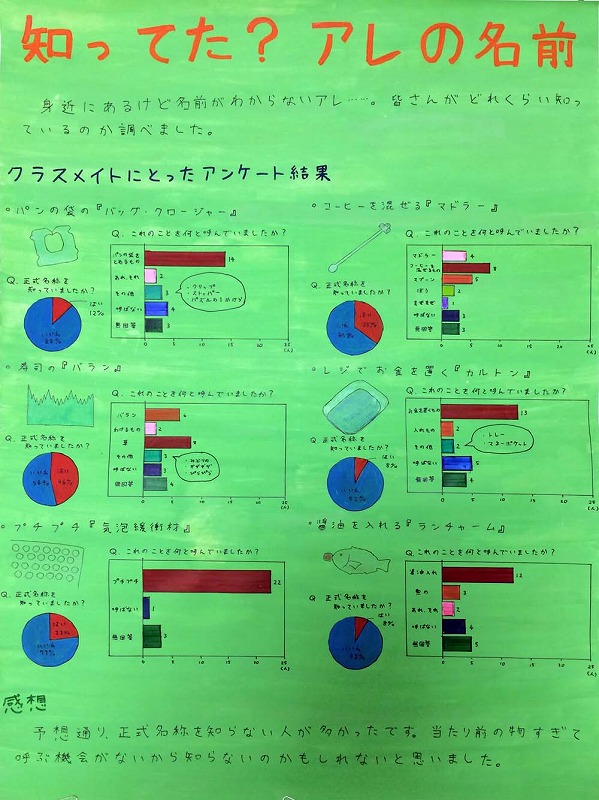 知ってた？ アレの名前
身近にあるけど名前がわからないアレ……。皆さんがどれくらい知っ
ているのか調べました。
クラスメイトにとったアンケート結果
。パンの袋の『バッグ・クロージャー』
Q. これのことを何と呼んでいましたか？
Q. 正式名称を
知っていましたか？
はい
12%
いいえ
88%
パンの袋を
とめるもの
14
あれ、それ
2
その他
3
呼ばない
4
無回答
3
・クリップ
・ストッパー
・パズルのかけら
0 5 10 15 20 25
(人)
。コーヒーを混ぜる『マドラー』
Q. これのことを何と呼んでいましたか？
Q. 正式名称を
知っていましたか？
はい
いいえ
マドラー
4
コーヒーを
混ぜるもの
8
スプーン
5
ぼう
2
まぜまぜ
1
呼ばない
3
無回答
3
0 5 10 15 20 25
(人)
。寿司の『バラン』
Q. これのことを何と呼んでいましたか？
Q. 正式名称を
知っていましたか？
いいえ
54%
はい
46%
バラン
わけるもの
2
草
8
その他
3
呼ばない
3
無回答
4
0 5 10 15 20 25
(人)
。レジでお金を置く『カルトン』
Q. これのことを何と呼んでいましたか？
Q. 正式名称を
知っていましたか？
はい
8%
いいえ
92%
お金を置くもの
13
入れもの
2
その他
2
呼ばない
5
無回答
4
・トレー
・マネーポケット
0 5 10 15 20 25
(人)
。プチプチ『気泡緩衝材』
Q. これのことを何と呼んでいましたか？
Q. 正式名称を
知っていましたか？
はい
23%
いいえ
77%
プチプチ
22
呼ばない
1
無回答
3
0 5 10 15 20 25
(人)
。醤油を入れる『ランチャーム』
Q. これのことを何と呼んでいましたか？
Q. 正式名称を
知っていましたか？
はい
8%
いいえ
92%
醤油入れ
12
魚の
3
あれ、それ
2
呼ばない
4
無回答
5
0 5 10 15 20 25
(人)
感想
予想通り、正式名称を知らない人が多かったです。当たり前の物すぎて
呼ぶ機会がないから知らないのかもしれないと思いました。